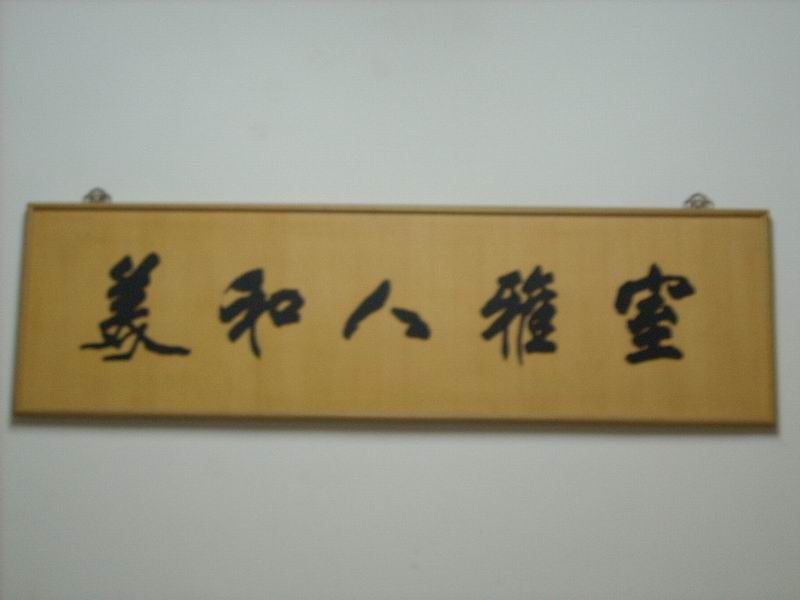 美和人雅室